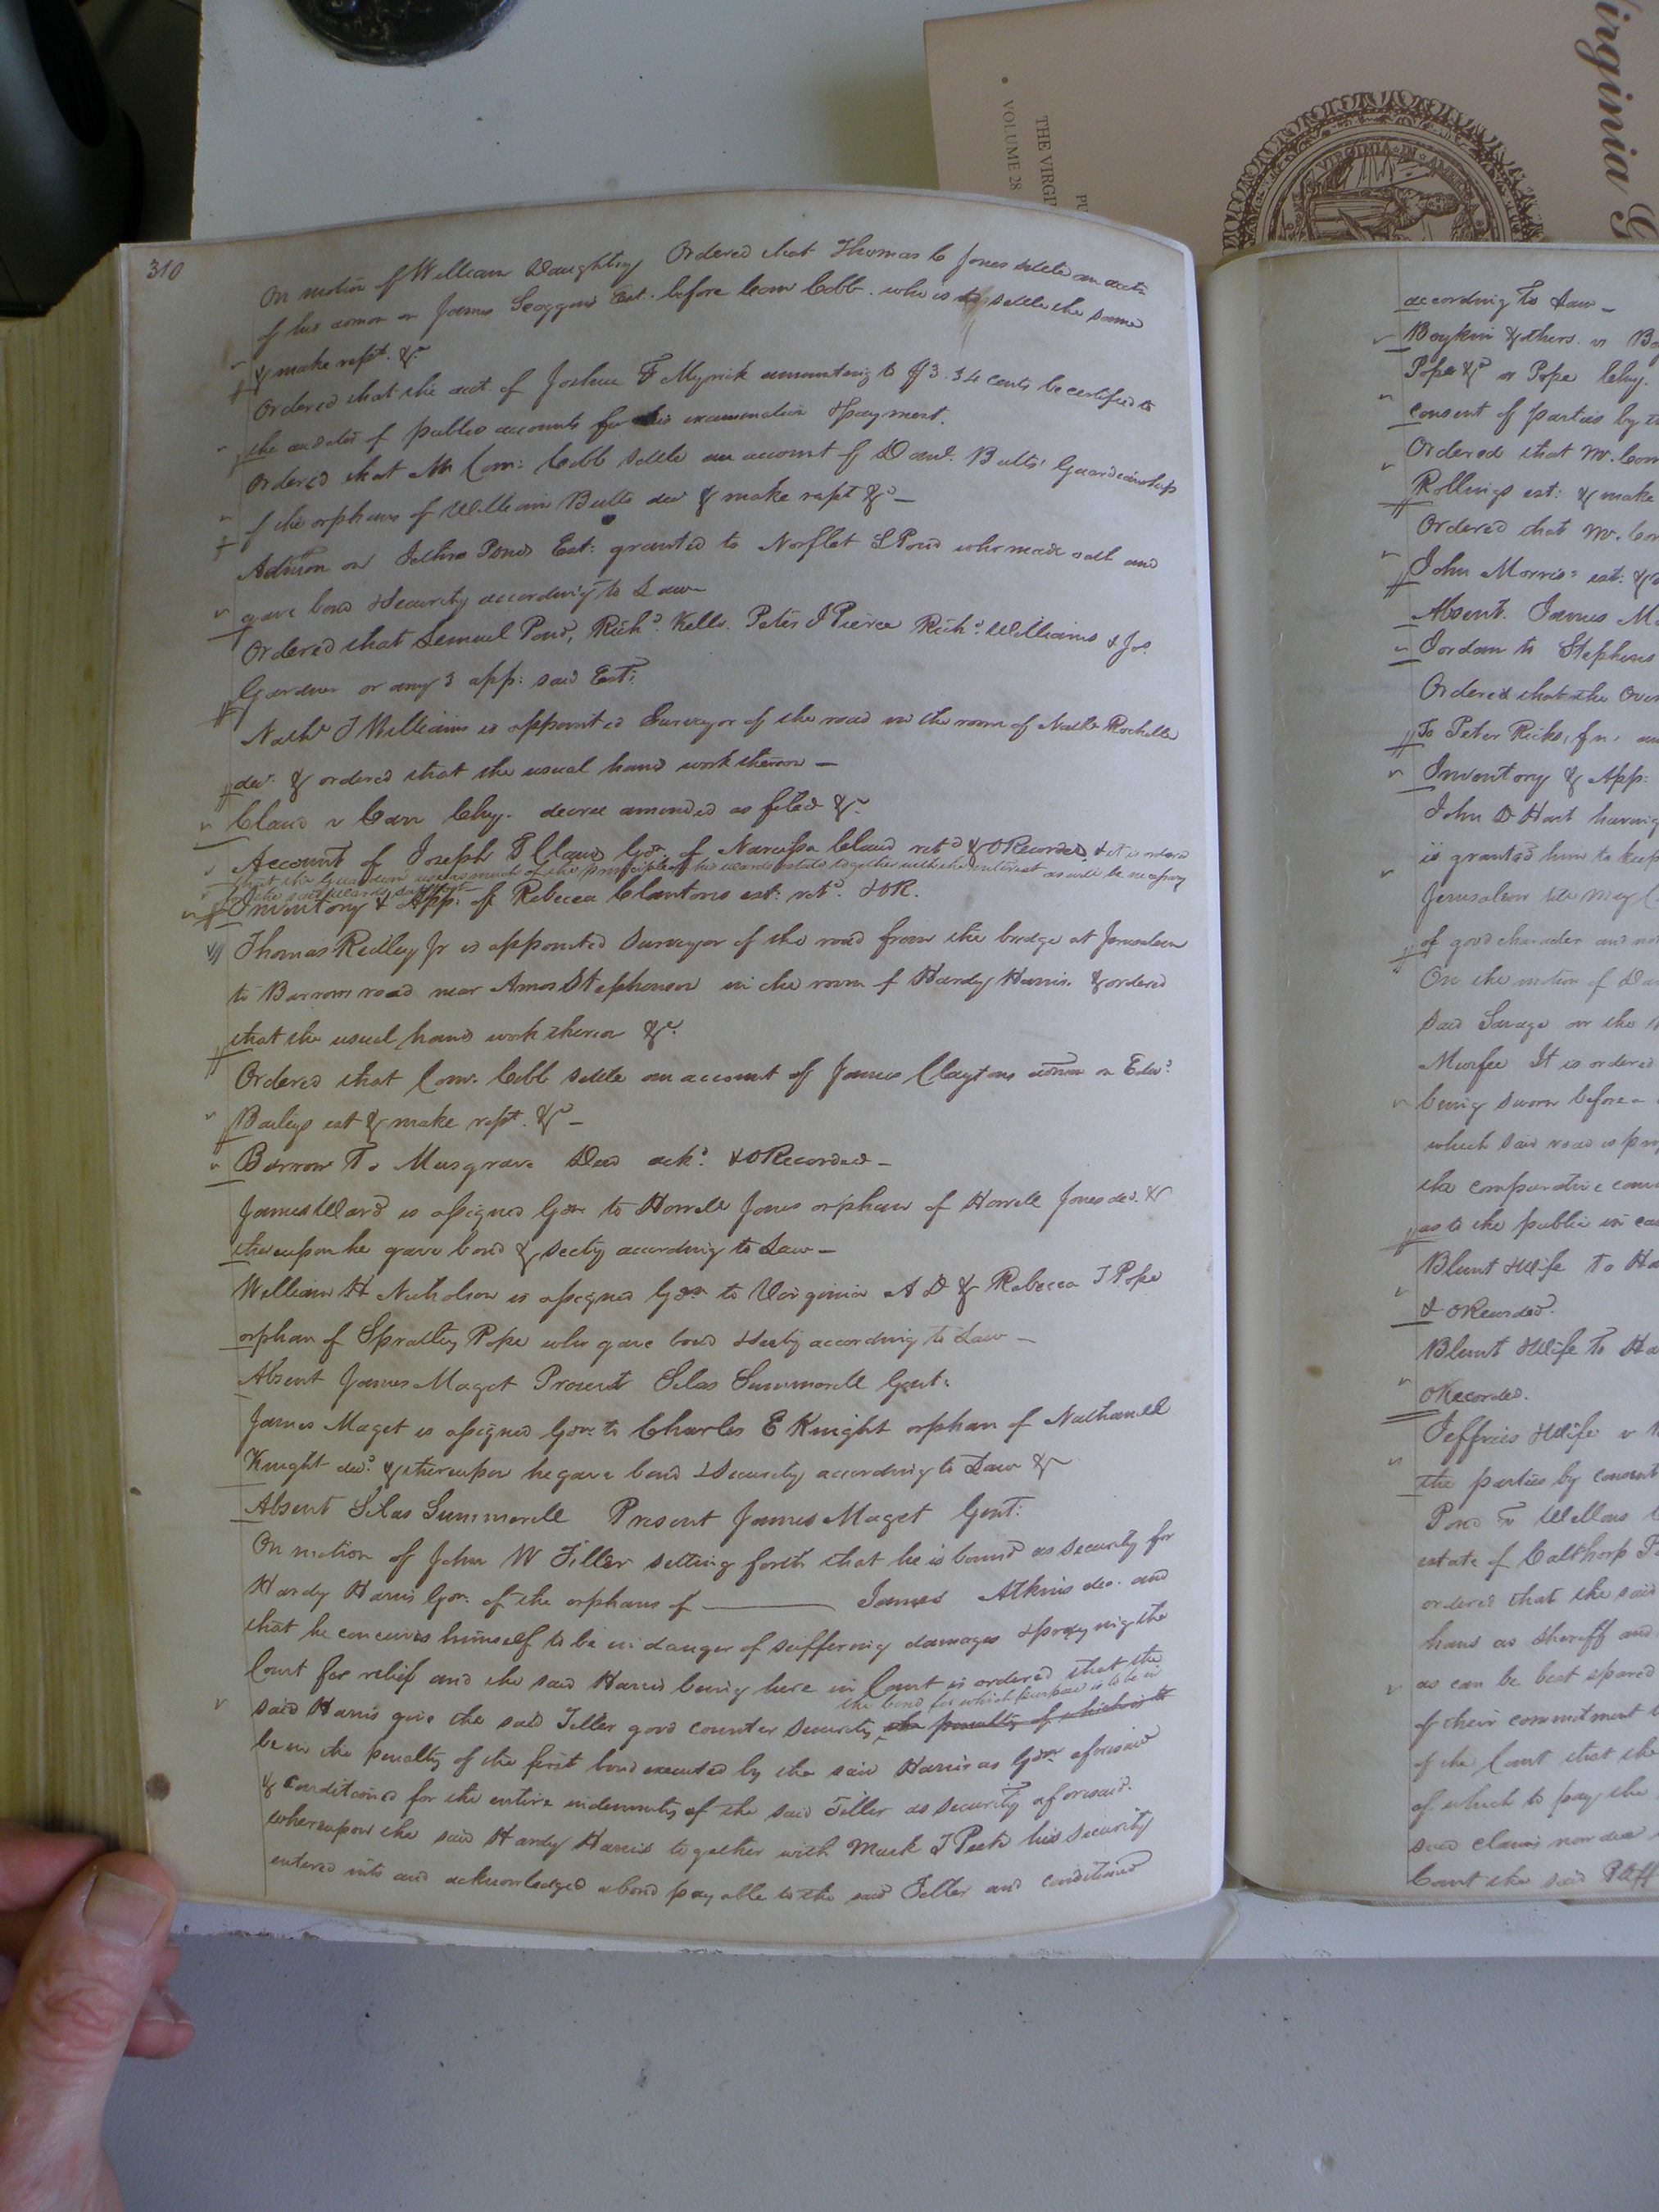 irginia G
VIRGINIA IN AR
PU
THE VIRG
VOLUME 28
310
On motion of William Daughtry Ordered that Thomas C Jones settle an acct
of his admon on James Scoggins Est. before Com Cobb. who is to settle the same
& make rept. &c
Ordered that the acct of Joshua F Myrick amounting to $3.34 cents be certified to
the auditor of public accounts for his examination & payment.
Ordered that Mr Com: Cobb settle an account of Danl. Butts' Guardianship
of the orphans of William Butts dec & make rept &c —
Admon on Jethro Ponds Est: granted to Norflet S Pond who made oath and
gave bond & Security according to Law
Ordered that Lemuel Pond, Richd. Kello. Peter J Pierce Richd. Williams & Jos.
Gardner or any 3 app: said Est:
Nathl J Williams is appointed Surveyor of the road in the room of Nathl Rochelle
decd. & ordered that the usual hands work thereon —
Claud v Carr Chy. decree amended as filed &c
Account of Joseph T Claud Gdn. of Narcissa Claud retd & ORecorded, & it is ordered
that the Guardian use as much of the principle of his wards estate together with the interest as will be necessary
for the said wards support —
Inventory & App: of Rebecca Clantons est: retd. & OR.
Thomas Ridley Jr is appointed Surveyor of the road from the bridge at Jerusalem
to Barrows road near Amos Stephenson in the room of Hardy Harris. & ordered
that the usual hands work thereon &c.
Ordered that Com. Cobb settle an account of James Claytons admon on Edwd.
Baileys est & make rept. &c —
Barrow To Musgrave Deed ackd. & ORecorded —
James Ward is assigned Gdn to Howell Jones orphan of Howell Jones decd. &
thereupon he gave bond & secty according to Law —
William H Nicholson is assigned Gdn to Virginia A D & Rebecca J Pope
orphan of Spratley Pope who gave bond & secty according to Law —
Absent James Maget Present Silas Summerell Gent:
James Maget is assigned Gdn. to Charles E Knight orphan of Nathaniel
Knight decd. & thereupon he gave bond & Security according to Law &c
Absent Silas Summerell Present James Maget Gent:
On motion of John W Tiller setting forth that he is bound as security for
Hardy Harris Gdn. of the orphans of ——— James Atkins dec. and
that he conceives himself to be in danger of suffering damages & praying the
Court for relief and the said Harris being here in Court is ordered that the
the bond for which purpose is to be in
said Harris give the said Tiller good counter security, the penalty of which is to
be in the penalty of the first bond executed by the said Harris as Gdn aforesaid
& conditioned for the entire indemnity of the said Tiller as security aforesaid.
whereupon the said Hardy Harris together with Mark J Peete his security
entered into and acknowledged a bond payable to the said Tiller and conditioned
according to Law —
Boykin & others. vs
Pope &c vs Pope Chy.
consent of parties by
Ordered that Mr. Com
Rollings est: & make
Ordered that Mr. Com
John Morris' est: &
Absent. James M
Jordan to Stephens
Ordered that the Over
To Peter Ricks, Jn.
Inventory & App:
John D Hart having
is granted him to keep
Jerusalem till May
of good character and
On the motion of
Said Savage on the
Murfee It is ordered
being sworn before
which said road is
the comparative
as to the public
Blunt & Wife To Ha
& ORecorded.
Blunt & Wife To Ha
ORecorded.
Jeffries & Wife v
the parties by consent
Pond v Wellons
estate of Calthorp
ordered that the said
hands as Sheriff and
as can be best spared
of their commitment
of the Court that the
of which to pay the
said claims now due
Court the said Plff